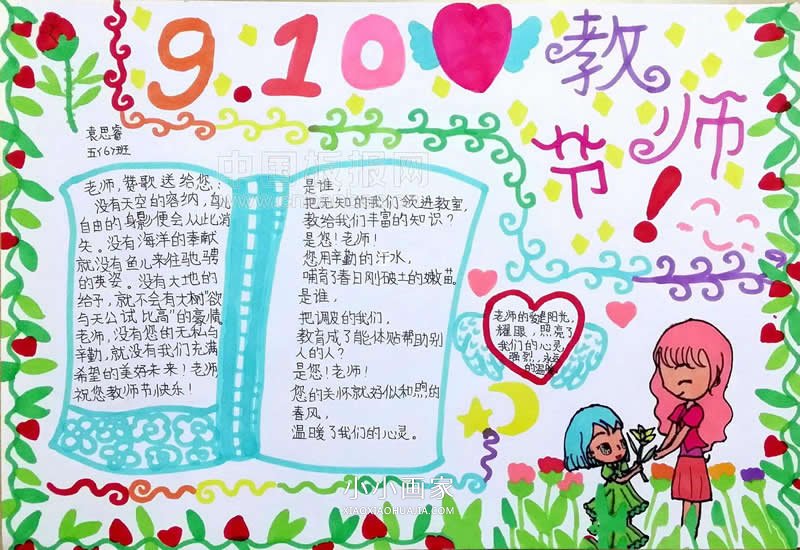 9.10
教师节！
袁思睿
五（6）班
老师，赞歌送给您：
没有天空的容纳，鸟儿
自由的身影便会从此消
失。没有海洋的奉献
就没有鱼儿来往驰骋
的英姿。没有大地的
给予，就不会有大树“欲
与天公试比高”的豪情
老师，没有您的无私与
辛勤，就没有我们充满
希望的美好未来！老师
祝您教师节快乐！
是谁，
把无知的我们领进教室，
教给我们丰富的知识？
是您！老师！
您用辛勤的汗水，
哺育了春日刚破土的嫩苗。
是谁，
把调皮的我们，
教育成了能体贴帮助别
人的人？
是您！老师！
您的关怀就好似和煦的
春风，
温暖了我们的心灵。
老师的爱是阳光，
耀眼，照亮了
我们的心灵
强烈，永远
的温暖
中国板报网
小小画家
XIAOXIAOHUAJIA.COM